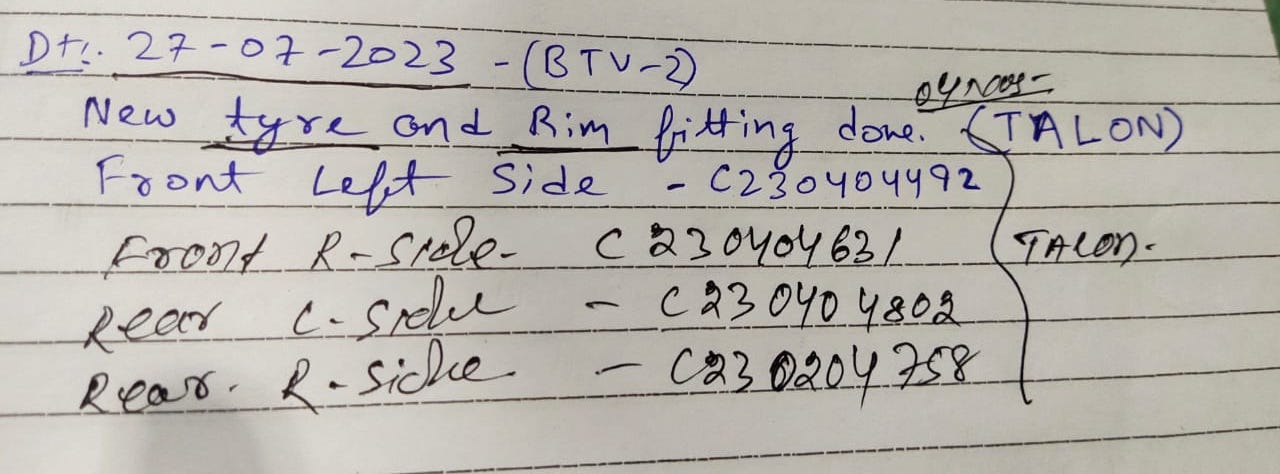 Dt:. 27-07-2023 - (BTV-2)
04 Nos -
New tyre and Rim fitting done. (TALON)
Front Left Side - C230404492
Front R-Side- C230404631 TALON-
Rear L-Side - C230404802
Rear. R-Side - C230204758